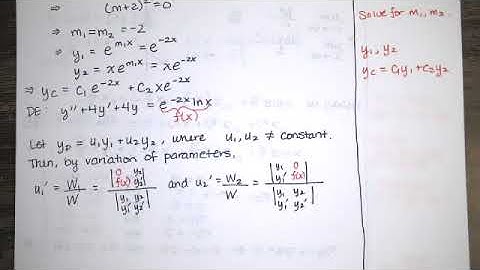 ⇒ (m+2)² = 0
⇒ m₁ = m₂ = -2
⇒ y₁ = e^{m₁x} = e^{-2x}
y₂ = xe^{m₁x} = xe^{-2x}
⇒ y_C = C₁e^{-2x} + C₂xe^{-2x}
DE: y'' + 4y' + 4y = e^{-2x} ln x
f(x)
Let y_p = u₁y₁ + u₂y₂, where u₁, u₂ ≠ constant.
Then, by variation of parameters,
u₁' = W₁/W = |0 y₂; f(x) y₂'| / |y₁ y₂; y₁' y₂'| and u₂' = W₂/W = |y₁ 0; y₁' f(x)| / |y₁ y₂; y₁' y₂'|
Solve for m₁, m₂.
y₁, y₂
y_C = C₁y₁ + C₂y₂